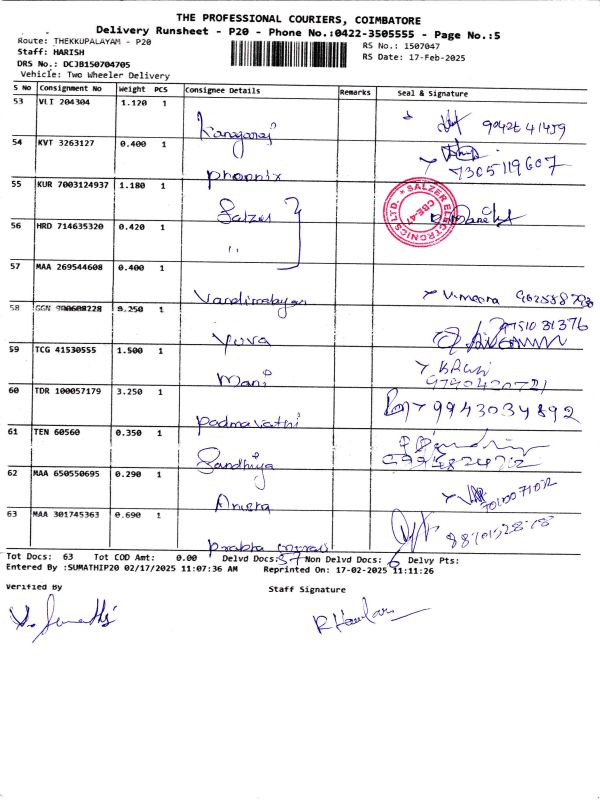 THE PROFESSIONAL COURIERS, COIMBATORE
Delivery Runsheet - P20 - Phone No.:0422-3505555 - Page No.:5
Route: THEKKUPALAYAM - P20 RS No.: 1507047
Staff: HARISH RS Date: 17-Feb-2025
DRS No.: DCJB150704705
Vehicle: Two Wheeler Delivery
S No Consignment No Weight PCS Consignee Details Remarks Seal & Signature
53 VLI 204304 1.120 1
Kanagaraj
54 KVT 3263127 0.400 1
phoenix 7305119607
55 KUR 7003124937 1.180 1
Salzer
SALZER ELECTRONICS LTD. CBE-47
56 HRD 714635320 0.420 1
"
57 MAA 269544608 0.400 1
V.meena
58 GGN 1 
Yuva
59 TCG 41530555 1.500 1
Mani
60 TDR 100057179 3.250 1
padmavathi 9943034892
61 TEN 60560 0.350 1
Sandhiya
62 MAA 650550695 0.290 1
63 MAA 301745363 0.690 1
Prabha
Tot Docs: 63 Tot COD Amt: 0.00 Delvd Docs: 57 Non Delvd Docs: 6 Delvy Pts:
Entered By :SUMATHIP20 02/17/2025 11:07:36 AM Reprinted On: 17-02-2025 11:11:26
Verified By Staff Signature